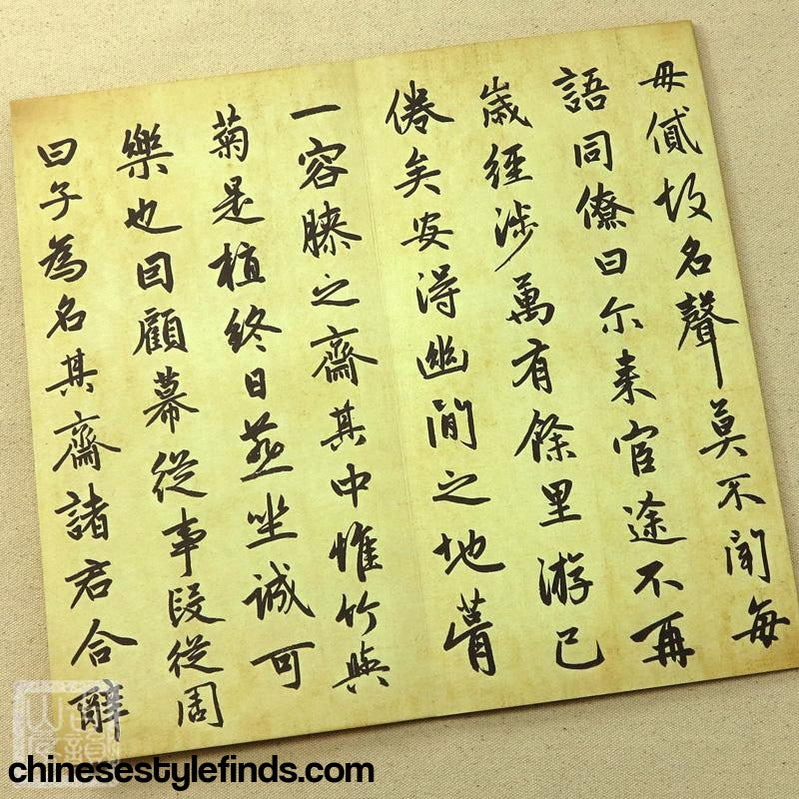 毋貳故名聲莫不聞每
語同僚曰尔来宦途不再
歲經涉萬有餘里游已
倦矣安得幽閒之地葺
一容膝之齋其中惟竹與
菊是植終日燕坐誠可
樂也因顧幕從事段從周
曰子為名其齋諸君合辭
chinesestylefinds.com